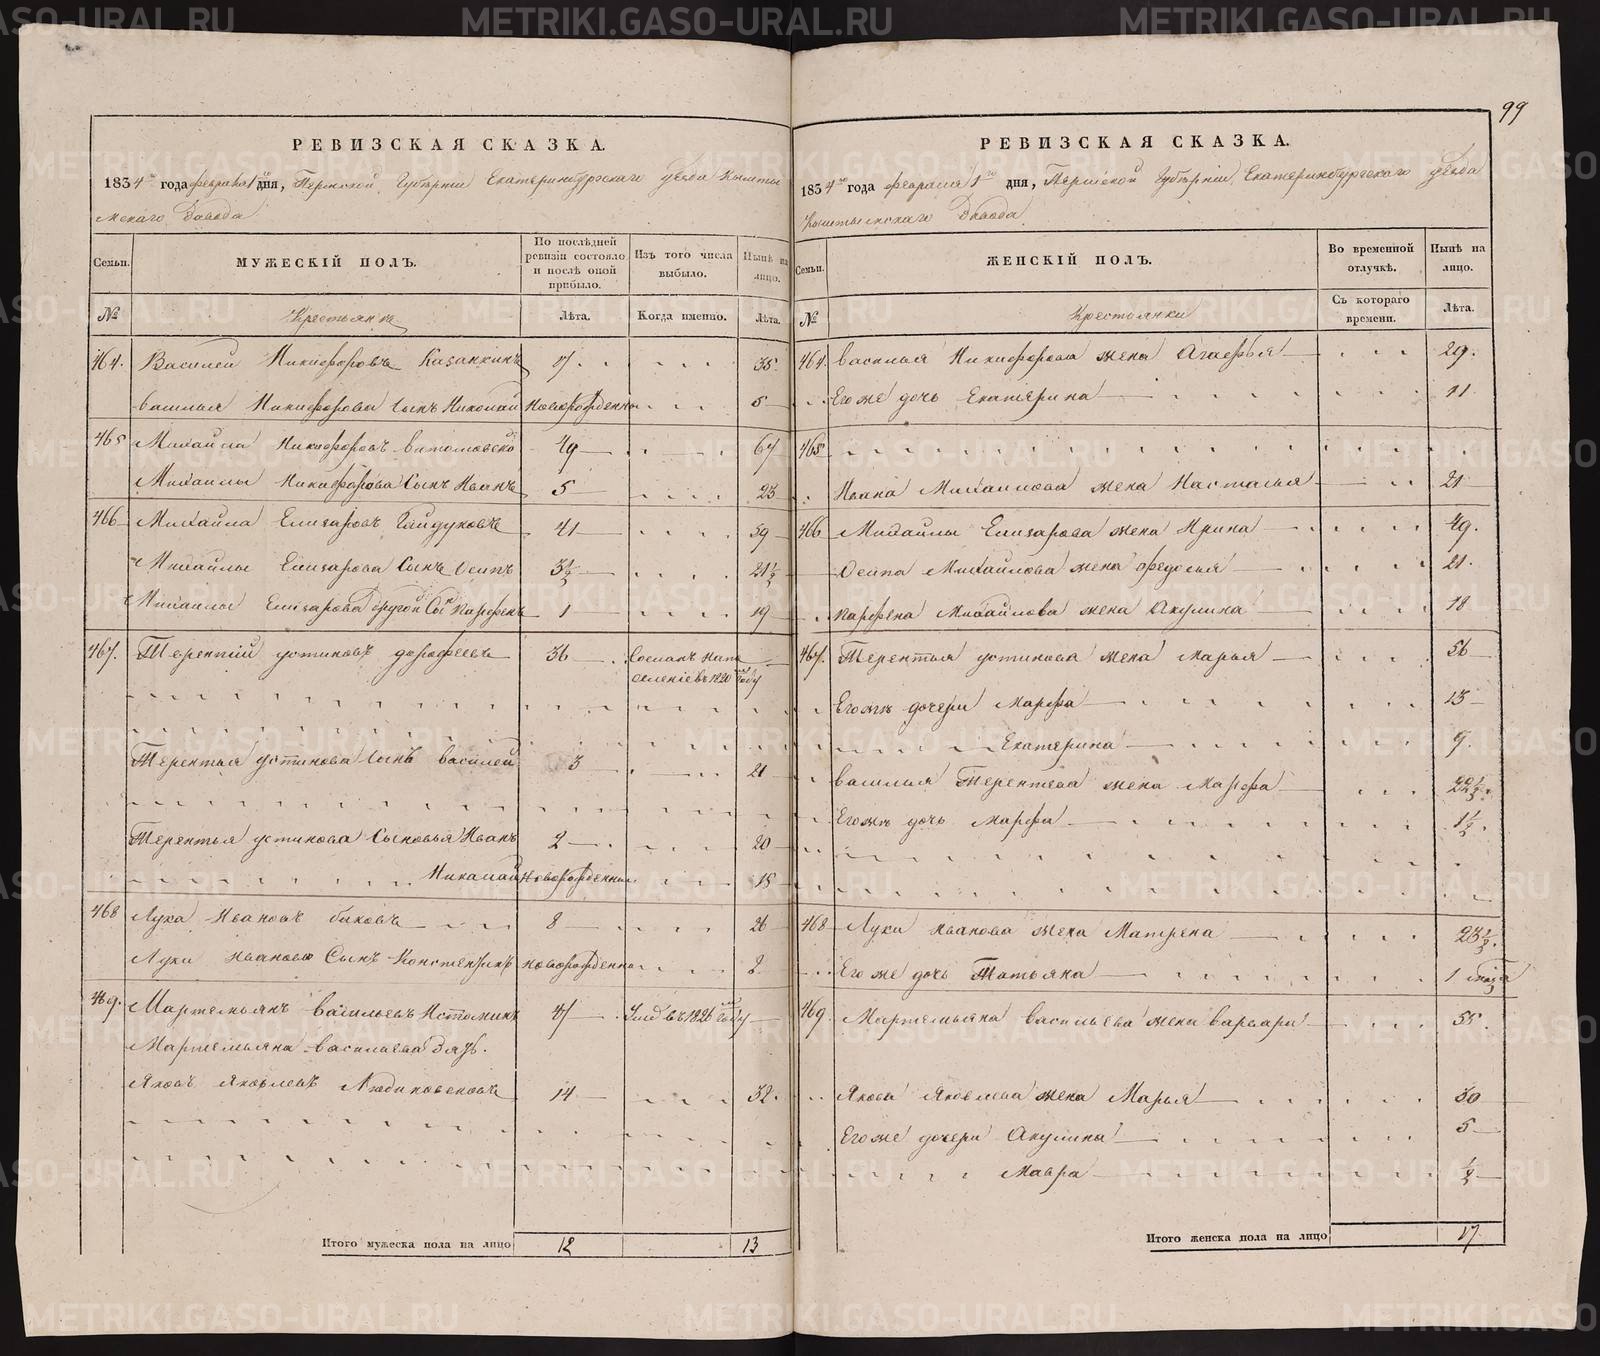 99
РЕВИЗСКАЯ СКАЗКА.
1834го года февраля 1го дня, Пермской Губернии Екатеринбургскаго уезда Кышты
мскаго Завода
Семьи.
МУЖЕСКІЙ ПОЛЪ.
По послѣдней ревизіи состояло и послѣ оной прибыло.
Изъ того числа выбыло.
Нынѣ на лицо.
№
Крестьяне
Лѣта.
Когда именно.
Лѣта.
464. Василей Никифоровъ Казанкинъ 17 35.
Василья Никифорова Сынъ Николай Новорожденны 5
465 Михайла Никифоровъ 49 67
Михайлы Никифорова Сынъ Иванъ 5 23
466 Михайла Елизаровъ Гайдуковъ 41 59
Михайлы Елизарова Сынъ Осипъ 3½ 21½
Михайлы Елизарова другой Сын Парфенъ 1 19
467. Терентій Устиновъ Дорофеевъ 36 Сосланъ на по
селеніе въ 1820м году
Терентья Устинова Сынъ Василей 3 21
Терентья Устинова Сыновья Иванъ 2 20
Николай Новорожденны 15
468 Лука Ивановъ Быковъ 8 26
Луки Иванова Сынъ Констентинъ новорожденно 2
469. Мартемьянъ Васильевъ Истоминъ 47 Умр въ 1826м году
Мартемьяна Васильева Зять.
Яковъ Яковлевъ 14 32.
Итого мужеска пола на лицо 12 13
РЕВИЗСКАЯ СКАЗКА.
1834го года февраля 1го дня, Пермской Губерніи, Екатеринбургскаго уезда
Кыштымскаго Завода
Семьи.
ЖЕНСКІЙ ПОЛЪ.
Во временной отлучкѣ.
Нынѣ на лицо.
№
Крестьянки
Съ котораго времени.
Лѣта.
464 Василья Никифорова жена Агафья 29.
Его же дочь Екатерина 11
465
Ивана Михаилова жена Настасья 21
466 Михайлы Елизарова жена Ирина 49.
Осипа Михайлова жена Федосья 21.
Парфена Михайлова жена Акулина 18
467. Терентья Устинова жена Марья 56
Его же дочери Марфа 13
Екатерина 9.
Василья Терентева жена Марфа 22½.
Его же дочь Марфа 1½.
468 Луки Иванова жена Матрена 23½.
Его же дочь Татьяна 1
469. Мартемьяна Васильева жена Варвара 55.
Якова Яковлева жена Марья 30
Его же дочери Акулина 5
Мавра ½
Итого женска пола на лицо 17
METRIKI.GASO-URAL.RU